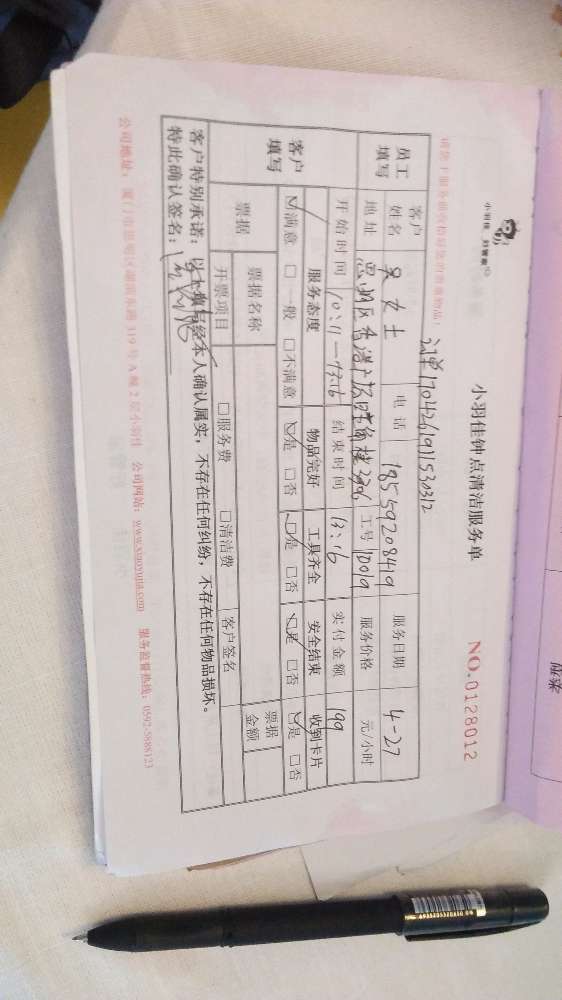 小羽佳 好管家
小羽佳钟点清洁服务单
NO.0128012
订单170426191530312
客户姓名 吴女士 电话 18559208419 服务日期 4-27
员工填写
地址 思明区香港广场 工号 10019 服务价格 元/小时
开始时间 10:11—13:16 结束时间 13:16 实付金额 199
客户填写
服务态度 物品完好 工具齐全 安全结束 收到卡片
☑满意 □一般 □不满意 ☑是 □否 ☑是 □否 ☑是 □否 ☑是 □否
票据 票据名称 票据金额
开票项目 □服务费 □清洁费 客户签名
客户特别承诺：以上填写经本人确认属实，不存在任何纠纷，不存在任何物品损坏。
特此确认签名：
公司地址：厦门市思明区湖滨东路319号A幢2层小羽佳 公司网站：www.xiaoyujia.com 服务监督热线：0592-5888123
6935205320810